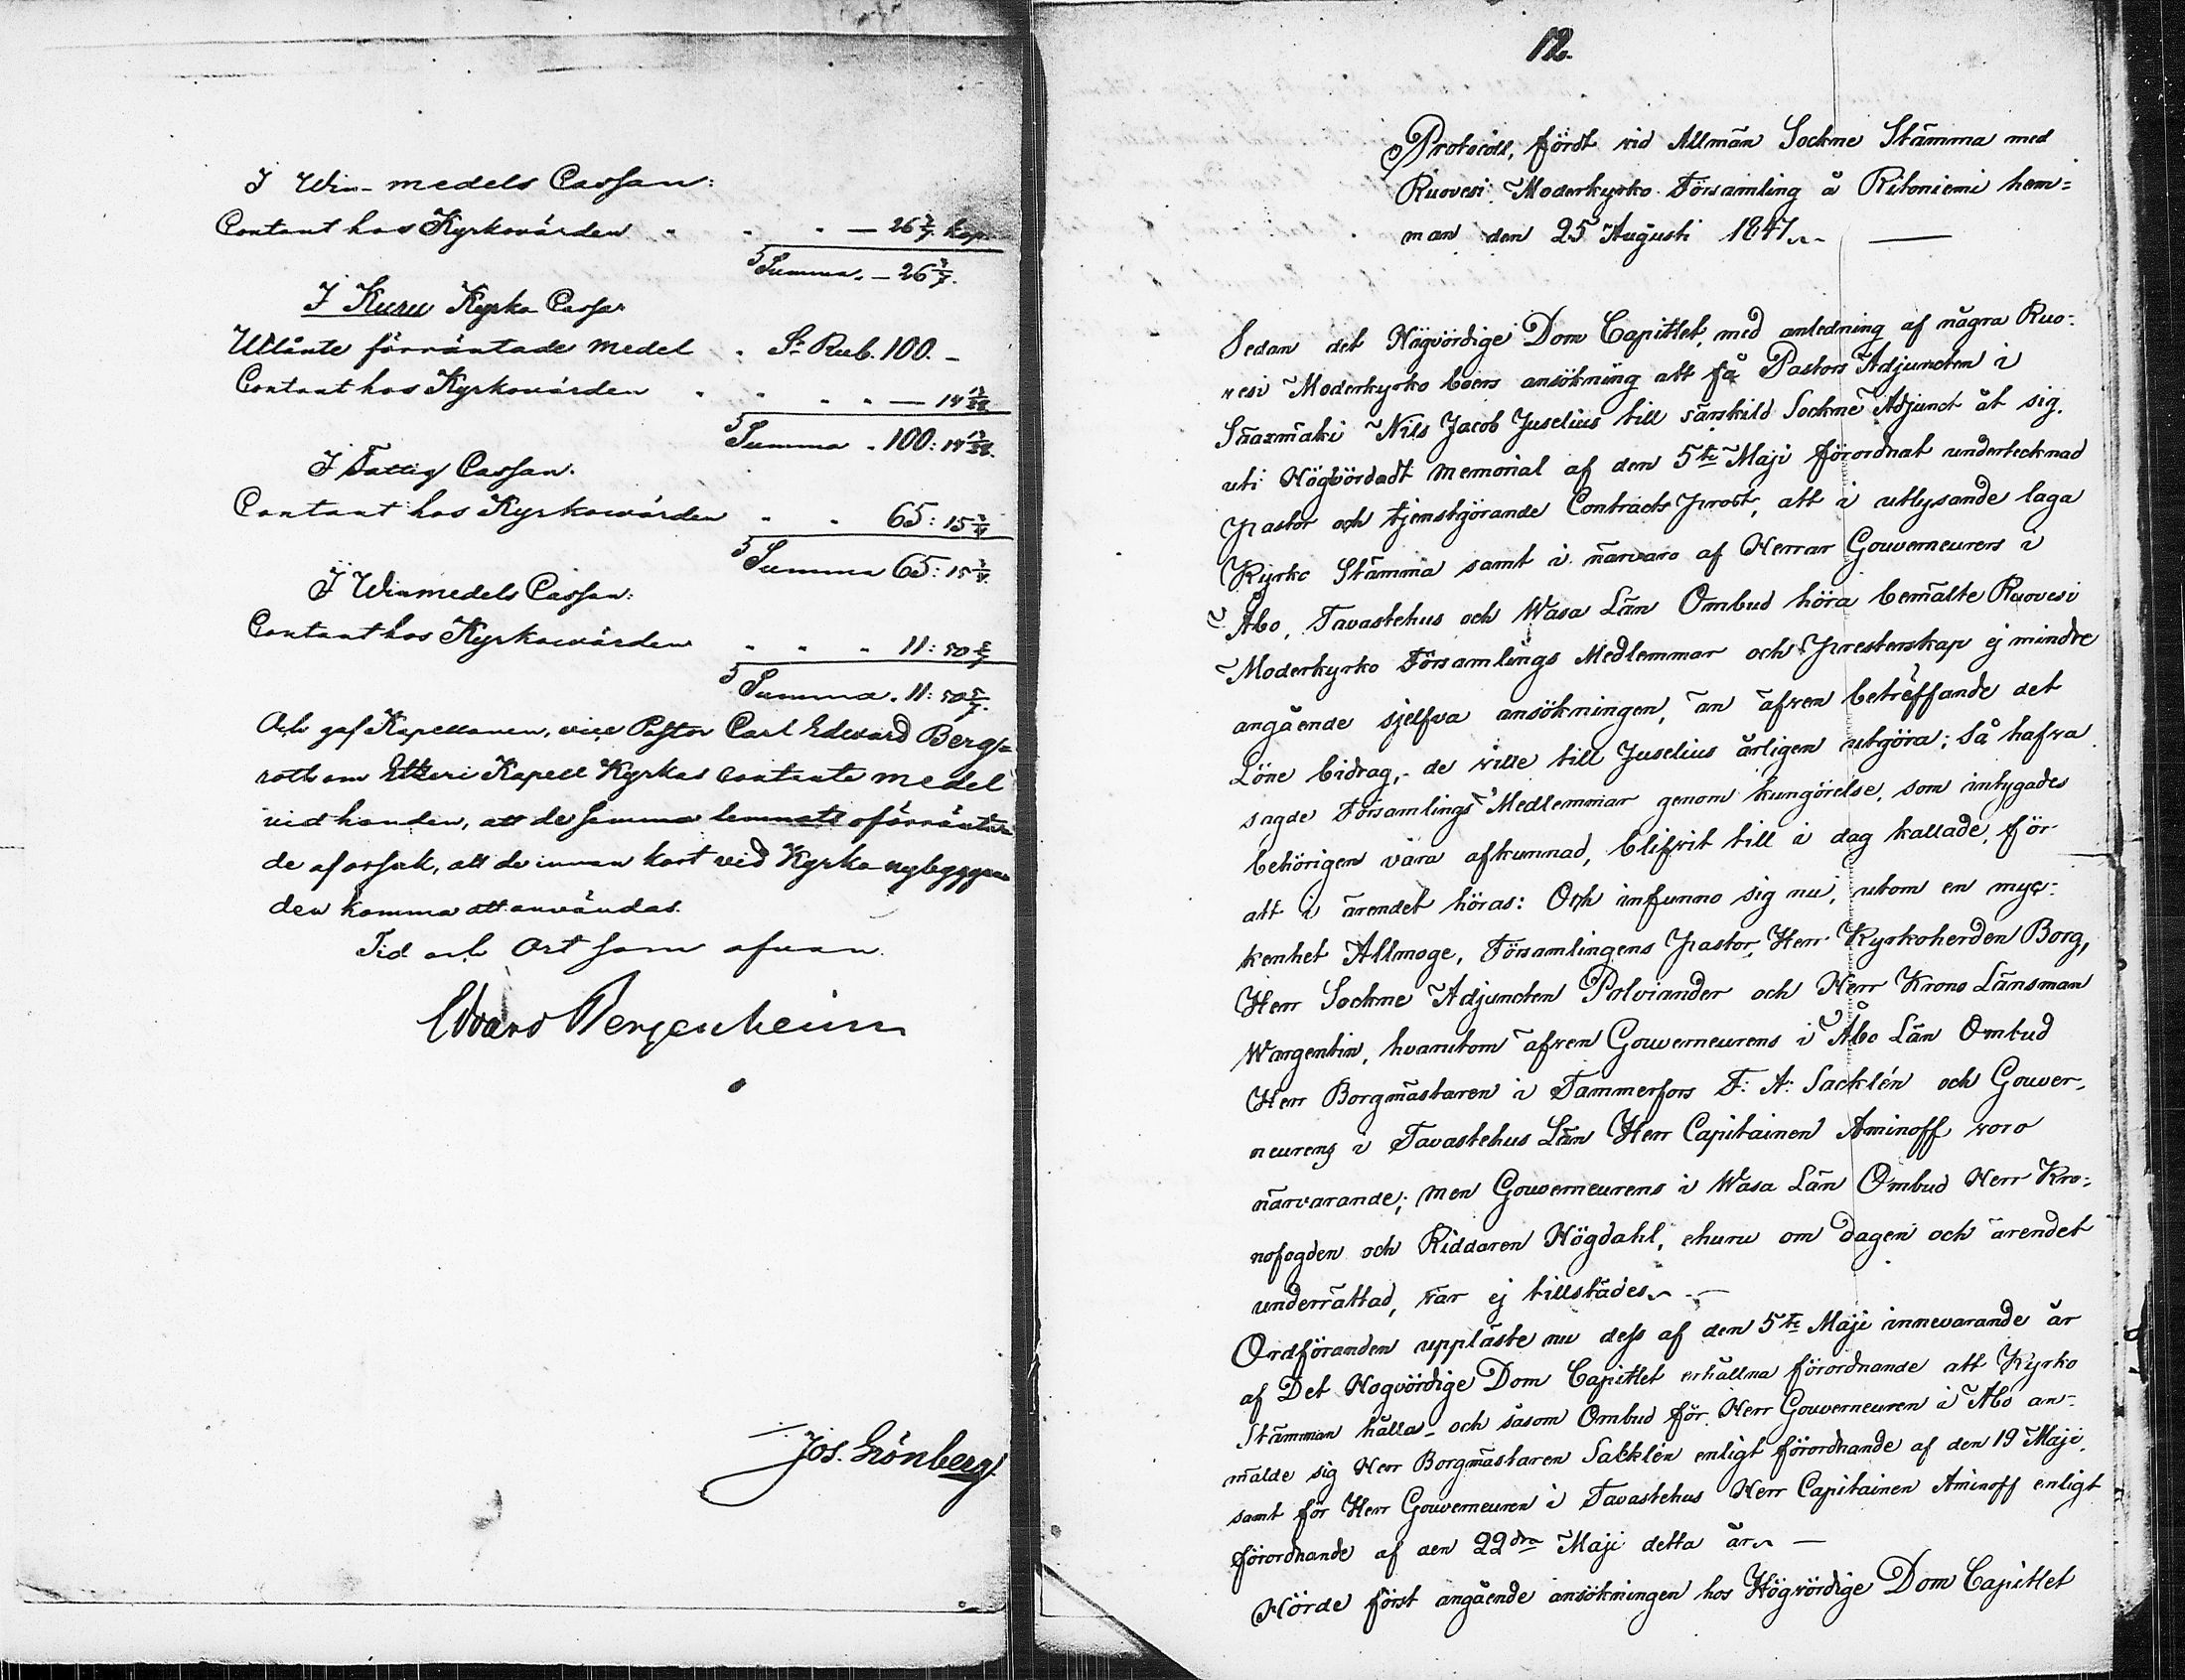 I Win-medels Cassan:
Contant hos Kyrkovärden " " " — 26 2/7 kop.
Summa. — 26 2/7.
I Kuru Kyrko Cassa
Utlånte förräntade medel . Sr Rub. 100. –
Contant hos Kyrkovärden " " " " — 14
Summa . 100: 14
I Fattig Cassan.
Contant hos Kyrkowärden " " 65: 15
Summa 65: 15
I Winmedels Cassan:
Contant hos Kyrkowärden " " " 11: 50 5/7
Summa . 11: 50 5/7.
Och gaf Kapellanen, vice Pastor Carl Edvard Berg=
roth om Etseri Kapell Kyrkas contanta medel
vid handen, att de samma lemnats oförränta
de af orsak, att de innan kort vid Kyrko nybyggna
den komma att användas.
Tid och Ort som ofvan.
Edvard Bergenheim
Jos. Grönberg.
12.
Protocoll, fördt vid Allmän Sockne Stämma med
Ruovesi Moderkyrko Församling å Ritoniemi hem=
man den 25 Augusti 1847. —
Sedan det Högvördige Dom Capitlet, med anledning af några Ruo=
vesi Moderkyrko boers ansökning att få Pastors Adjuncten i
Säaxmäki Nils Jacob Juselius till särskild Sockne Adjunct åt sig.
uti Högvördadt memorial af den 5te Maji förordnat undertecknad
Pastor och tjenstgörande Contracts Prost, att i utlysande laga
Kyrko Stämma samt i närvaro af Herrar Gouverneurers i
Åbo, Tavastehus och Wasa Län Ombud höra bemälte Ruovesi
Moderkyrko Församlings Medlemmar och Presterskap ej mindre
angående sjelfva ansökningen, än äfven beträffande det
Löne bidrag, de ville till Juselius årligen utgöra; Så hafva
sagde Församlings Medlemmar genom kungörelse, som intygades
behörigen vara afkunnad, blifvit till i dag kallade, för
att i ärendet höras: Och infunno sig nu, utom en myc=
kenhet Allmoge, Församlingens Pastor, Herr Kyrkoherden Borg,
Herr Sockne Adjuncten Polviander och Herr Krono Länsman
Wargentin, hvarutom äfven Gouverneurens i Åbo Län Ombud
Herr Borgmästaren i Tammerfors F: A: Sacklén och Gouver=
neurens i Tavastehus Län Herr Capitainen Aminoff voro
närvarande; men Gouverneurens i Wasa Län Ombud Herr Kro=
nofogden och Riddaren Högdahl, ehuru om dagen och ärendet
underrättad, var ej tillstädes. —
Ordföranden uppläste nu dess af den 5te Maji innevarande år
af Det Högvördige Dom Capitlet erhållna förordnande att Kyrko
Stämman hålla, och såsom Ombud för Herr Gouverneuren i Åbo an=
mälde sig Herr Borgmästaren Sacklén enligt förordnande af den 19 Maji,
samt för Herr Gouverneuren i Tavastehus Herr Capitainen Aminoff enligt
förordnande af den 22dra Maji detta år. —
Hörde först angående ansökningen hos Högvördige Dom Capitlet